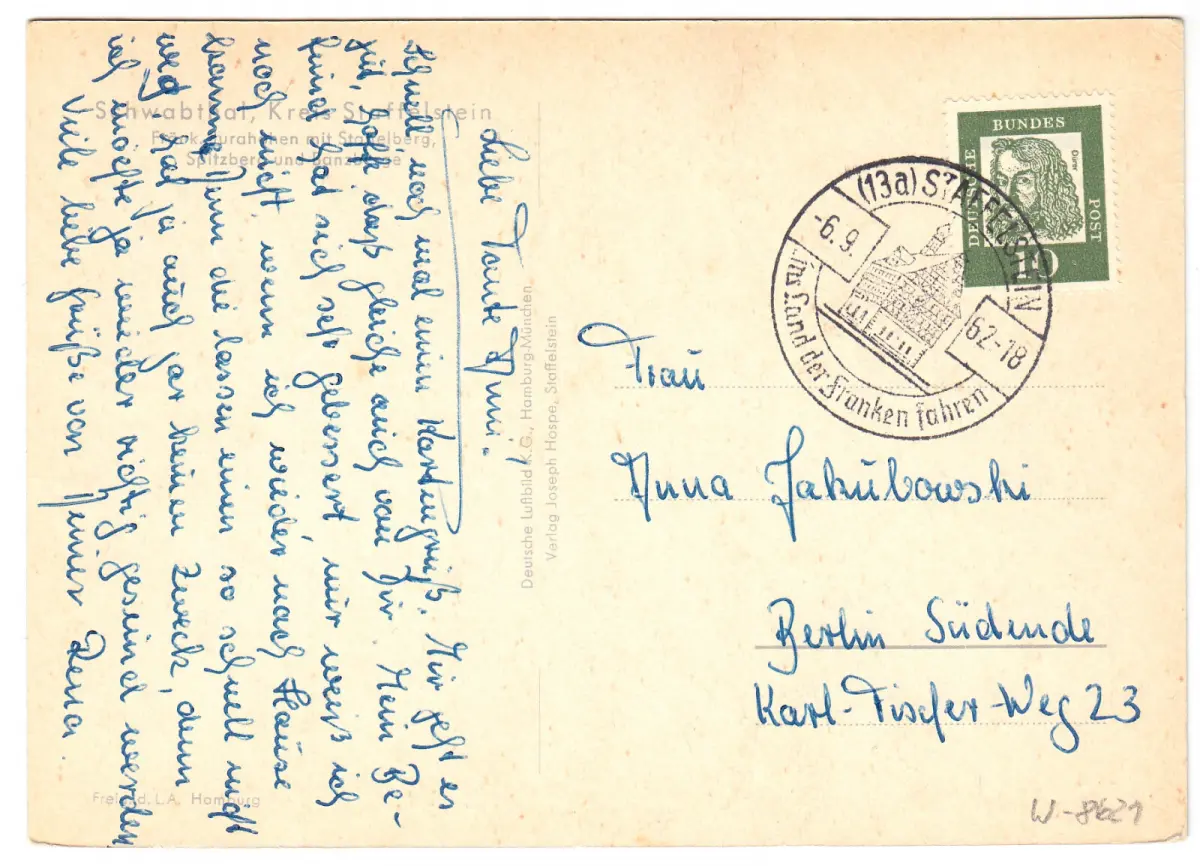 Schwabthal, Kreis Staffelstein
Fränk. Jurahöhen mit Staffelberg,
Spitzberg und Banzberge
Liebe Tante Anni!
Schnell noch mal einen Kartengruß. Mir geht es
gut, hoffe daß gleiche auch von Dir. Mein Be-
find hat sich sehr gebessert nur weis ich
noch nicht wenn ich wieder nach Hause
komme denn die lassen einen so schnell nicht
weg hat ja auch gar keinen Zweck, denn
ich möchte ja wieder richtig gesund werden
Viele liebe Grüße von Deiner Rena.
Deutsche Luftbild K.G., Hamburg-München
Verlag Joseph Hospe, Staffelstein
Freigd. L.A. Hamburg
DEUTSCHE
BUNDES
POST
Dürer
10
(13a) STAFFELSTEIN
-6.9
62-18
Ins Land der Franken fahren
Frau
Anna Jakubowski
Berlin Südende
Karl-Fischer-Weg 23
W-8621